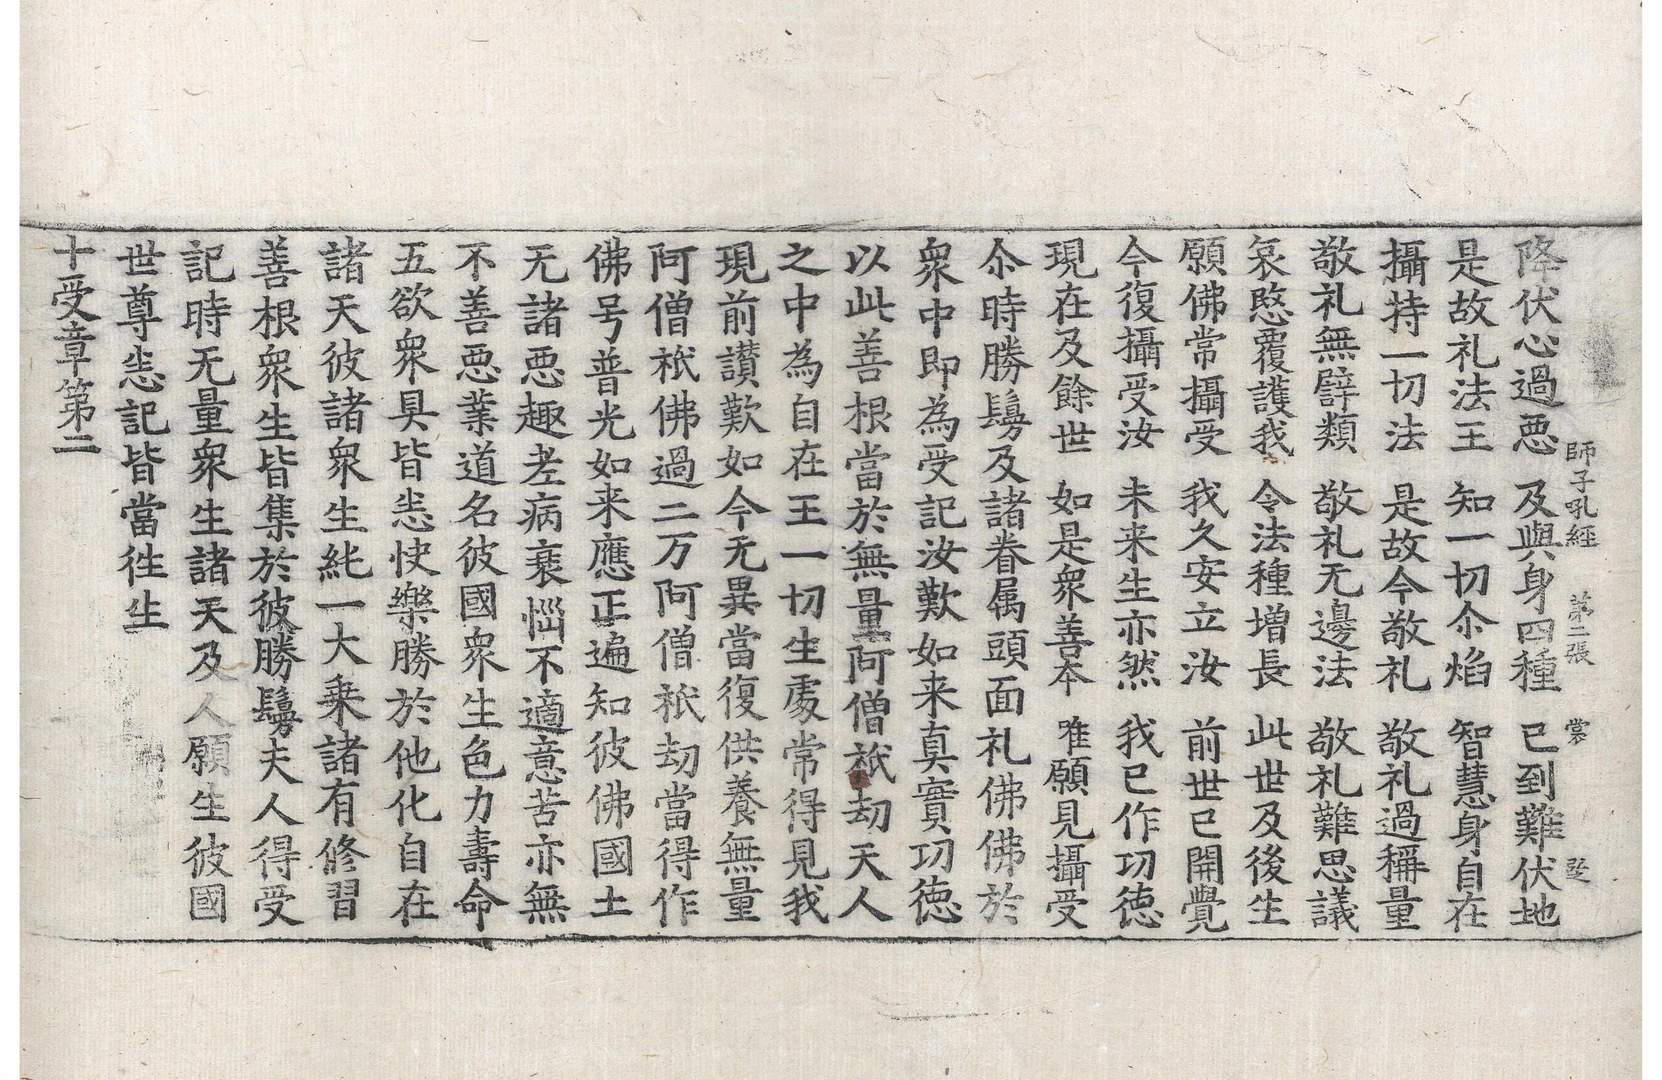 師子吼經　第二張　裳
降伏心過惡　及與身四種　已到難伏地
是故礼法王　知一切尒焰　智慧身自在
攝持一切法　是故今敬礼　敬礼過稱量
敬礼無譬類　敬礼无邊法　敬礼難思議
哀愍覆護我　令法種增長　此世及後生
願佛常攝受　我久安立汝　前世已開覺
今復攝受汝　未来生亦然　我已作功徳
現在及餘世　如是衆善夲　唯願見攝受
尒時勝鬘及諸眷属頭面礼佛佛於
衆中即為受記汝歎如来真實功徳
以此善根當於無量阿僧祇劫天人
之中為自在王一切生處常得見我
現前讃歎如今无異當復供養無量
阿僧祇佛過二万阿僧祇劫當得作
佛号普光如来應正遍知彼佛國土
无諸惡趣老病衰惱不適意苦亦無
不善惡業道名彼國衆生色力壽命
五欲衆具皆悉快樂勝於他化自在
諸天彼諸衆生純一大乗諸有修習
善根衆生皆集於彼勝鬘夫人得受
記時无量衆生諸天及人願生彼國
世尊悉記皆當徃生
十受章第二